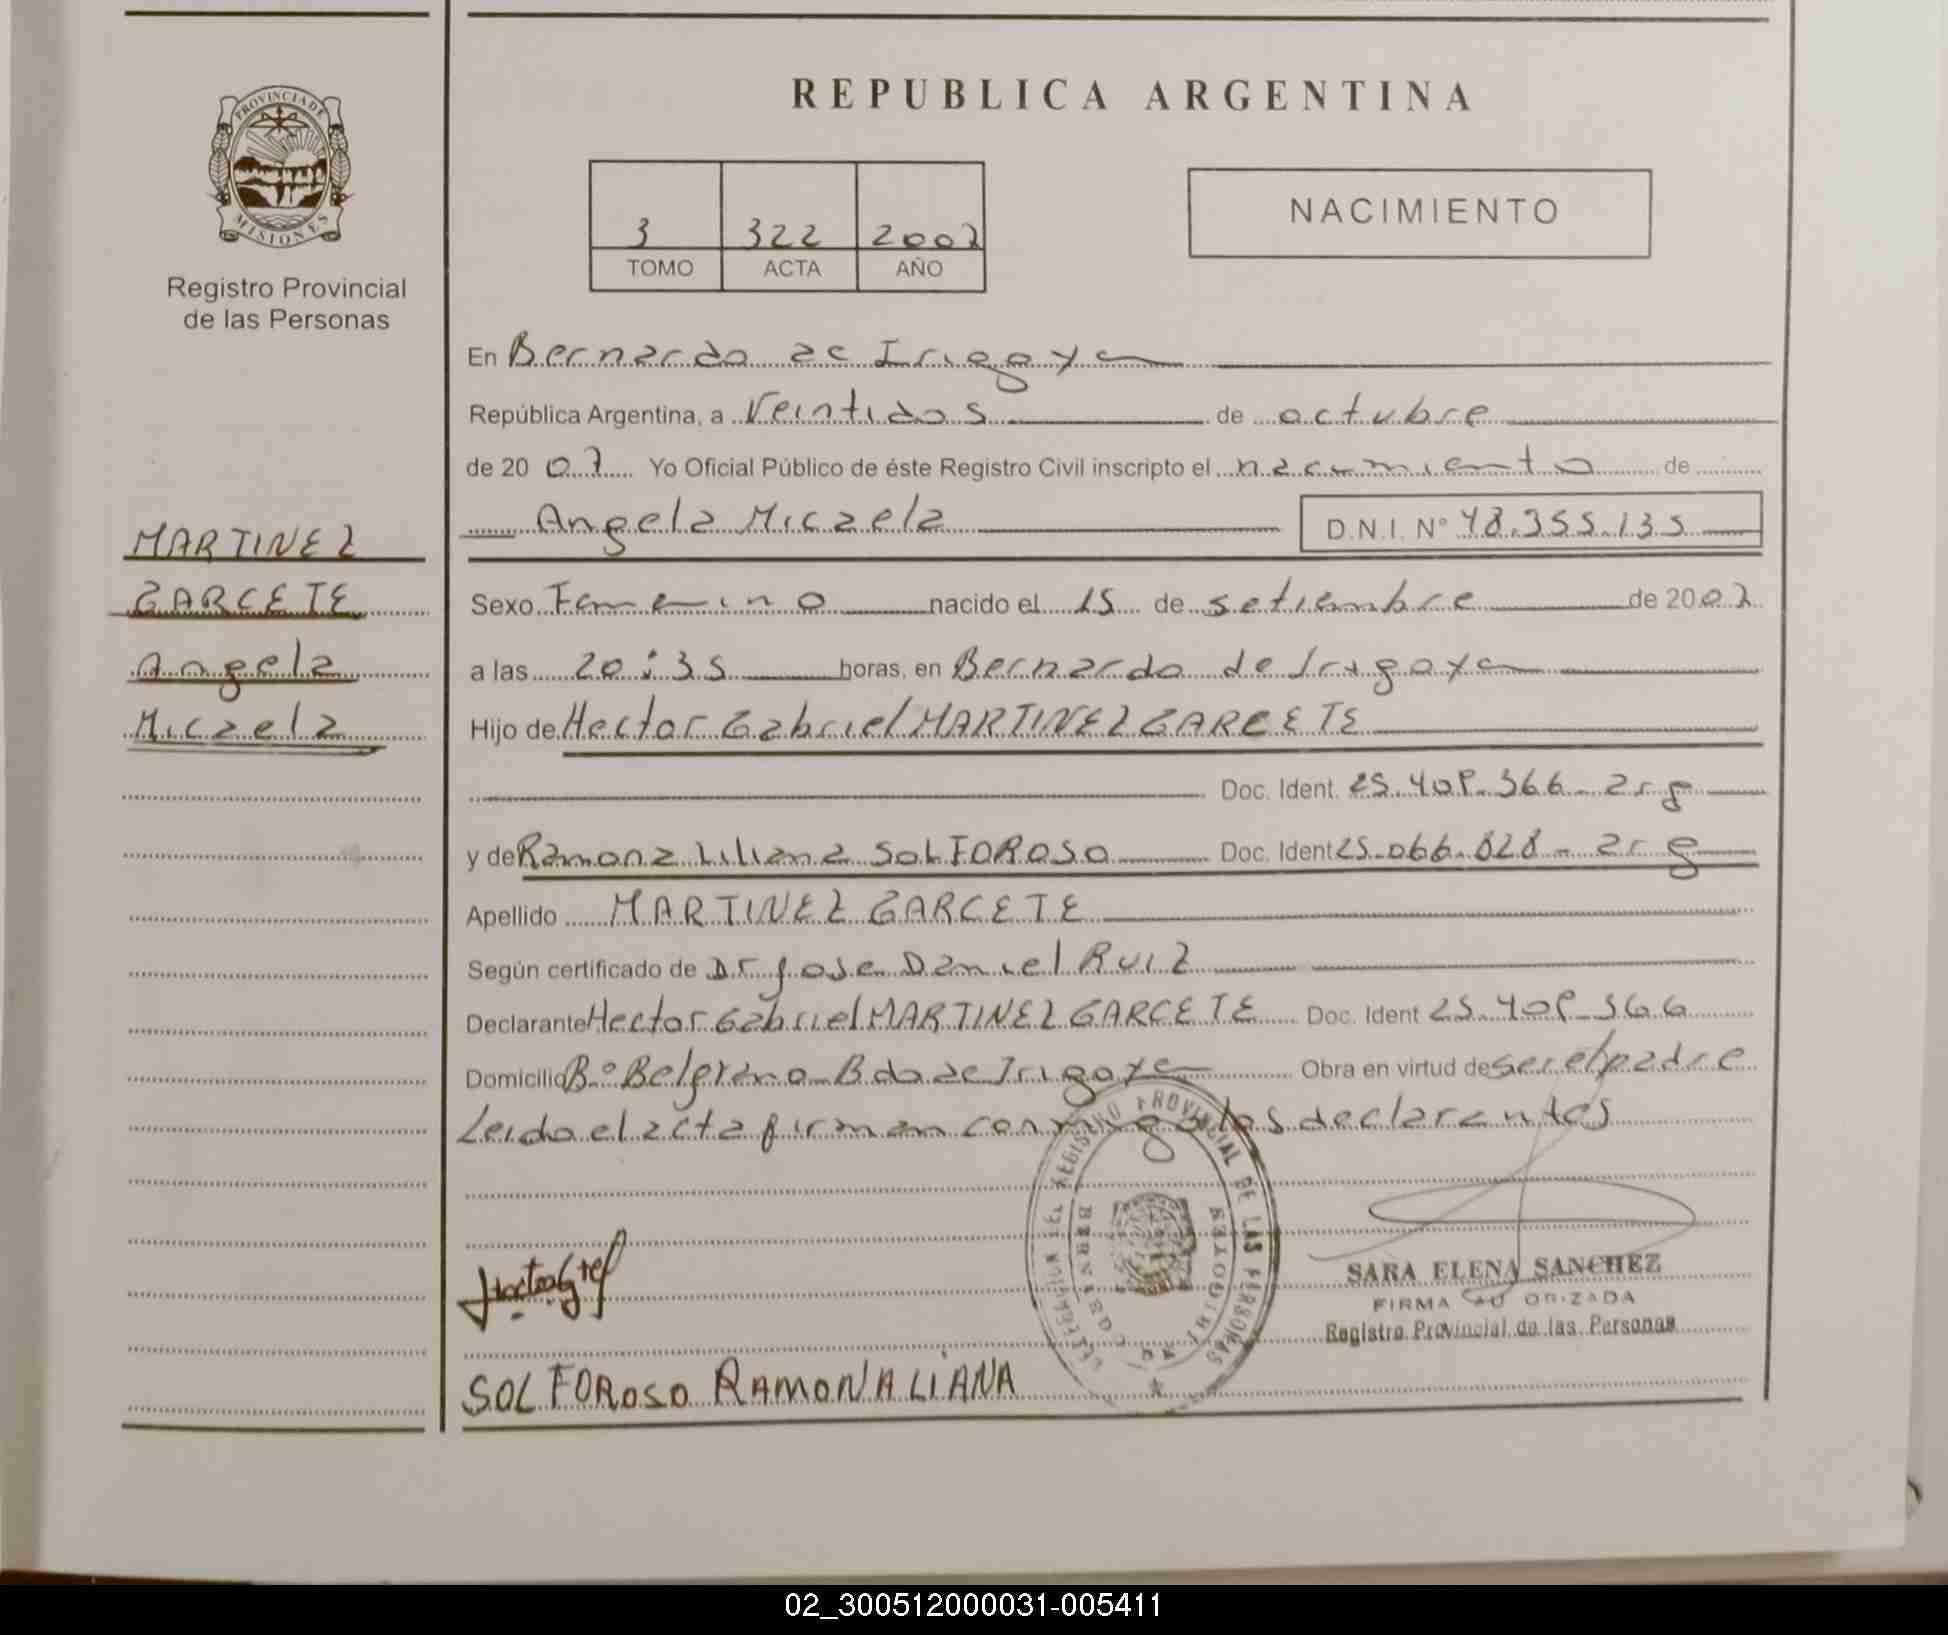 PROVINCIA DE
MISIONES
Registro Provincial
de las Personas
MARTINEZ
GARCETE
Angela
Micaela
REPUBLICA ARGENTINA
3 322 2007
TOMO ACTA AÑO
NACIMIENTO
En Bernardo de Irigoyen
República Argentina, a Veintidos de octubre
de 20 07 Yo Oficial Público de éste Registro Civil inscripto el nacimiento de
Angela Micaela D.N.I. Nº 48.355.135
Sexo Femenino nacido el 15 de setiembre de 2007
a las 20:35 horas, en Bernardo de Irigoyen
Hijo de Hector Gabriel MARTINEZ GARCETE
Doc. Ident. 25.408.366 - arg
y de Ramona Liliana SOLFOROSO Doc. Ident 25.066.828 - arg
Apellido MARTINEZ GARCETE
Según certificado de Dr Jose Daniel RUIZ
Declarante Hector Gabriel MARTINEZ GARCETE Doc. Ident 25.408.366
Domicilio Bº Belgrano - Bdo de Irigoyen Obra en virtud de ser el padre
Leido el acta firman conmigo los declarantes
REGISTRO PROVINCIAL DE LAS PERSONAS
BERNARDO DE IRIGOYEN
SARA ELENA SANCHEZ
FIRMA AUTORIZADA
Registro Provincial de las Personas
SOLFOROSO RAMONA LIANA
02_300512000031-005411